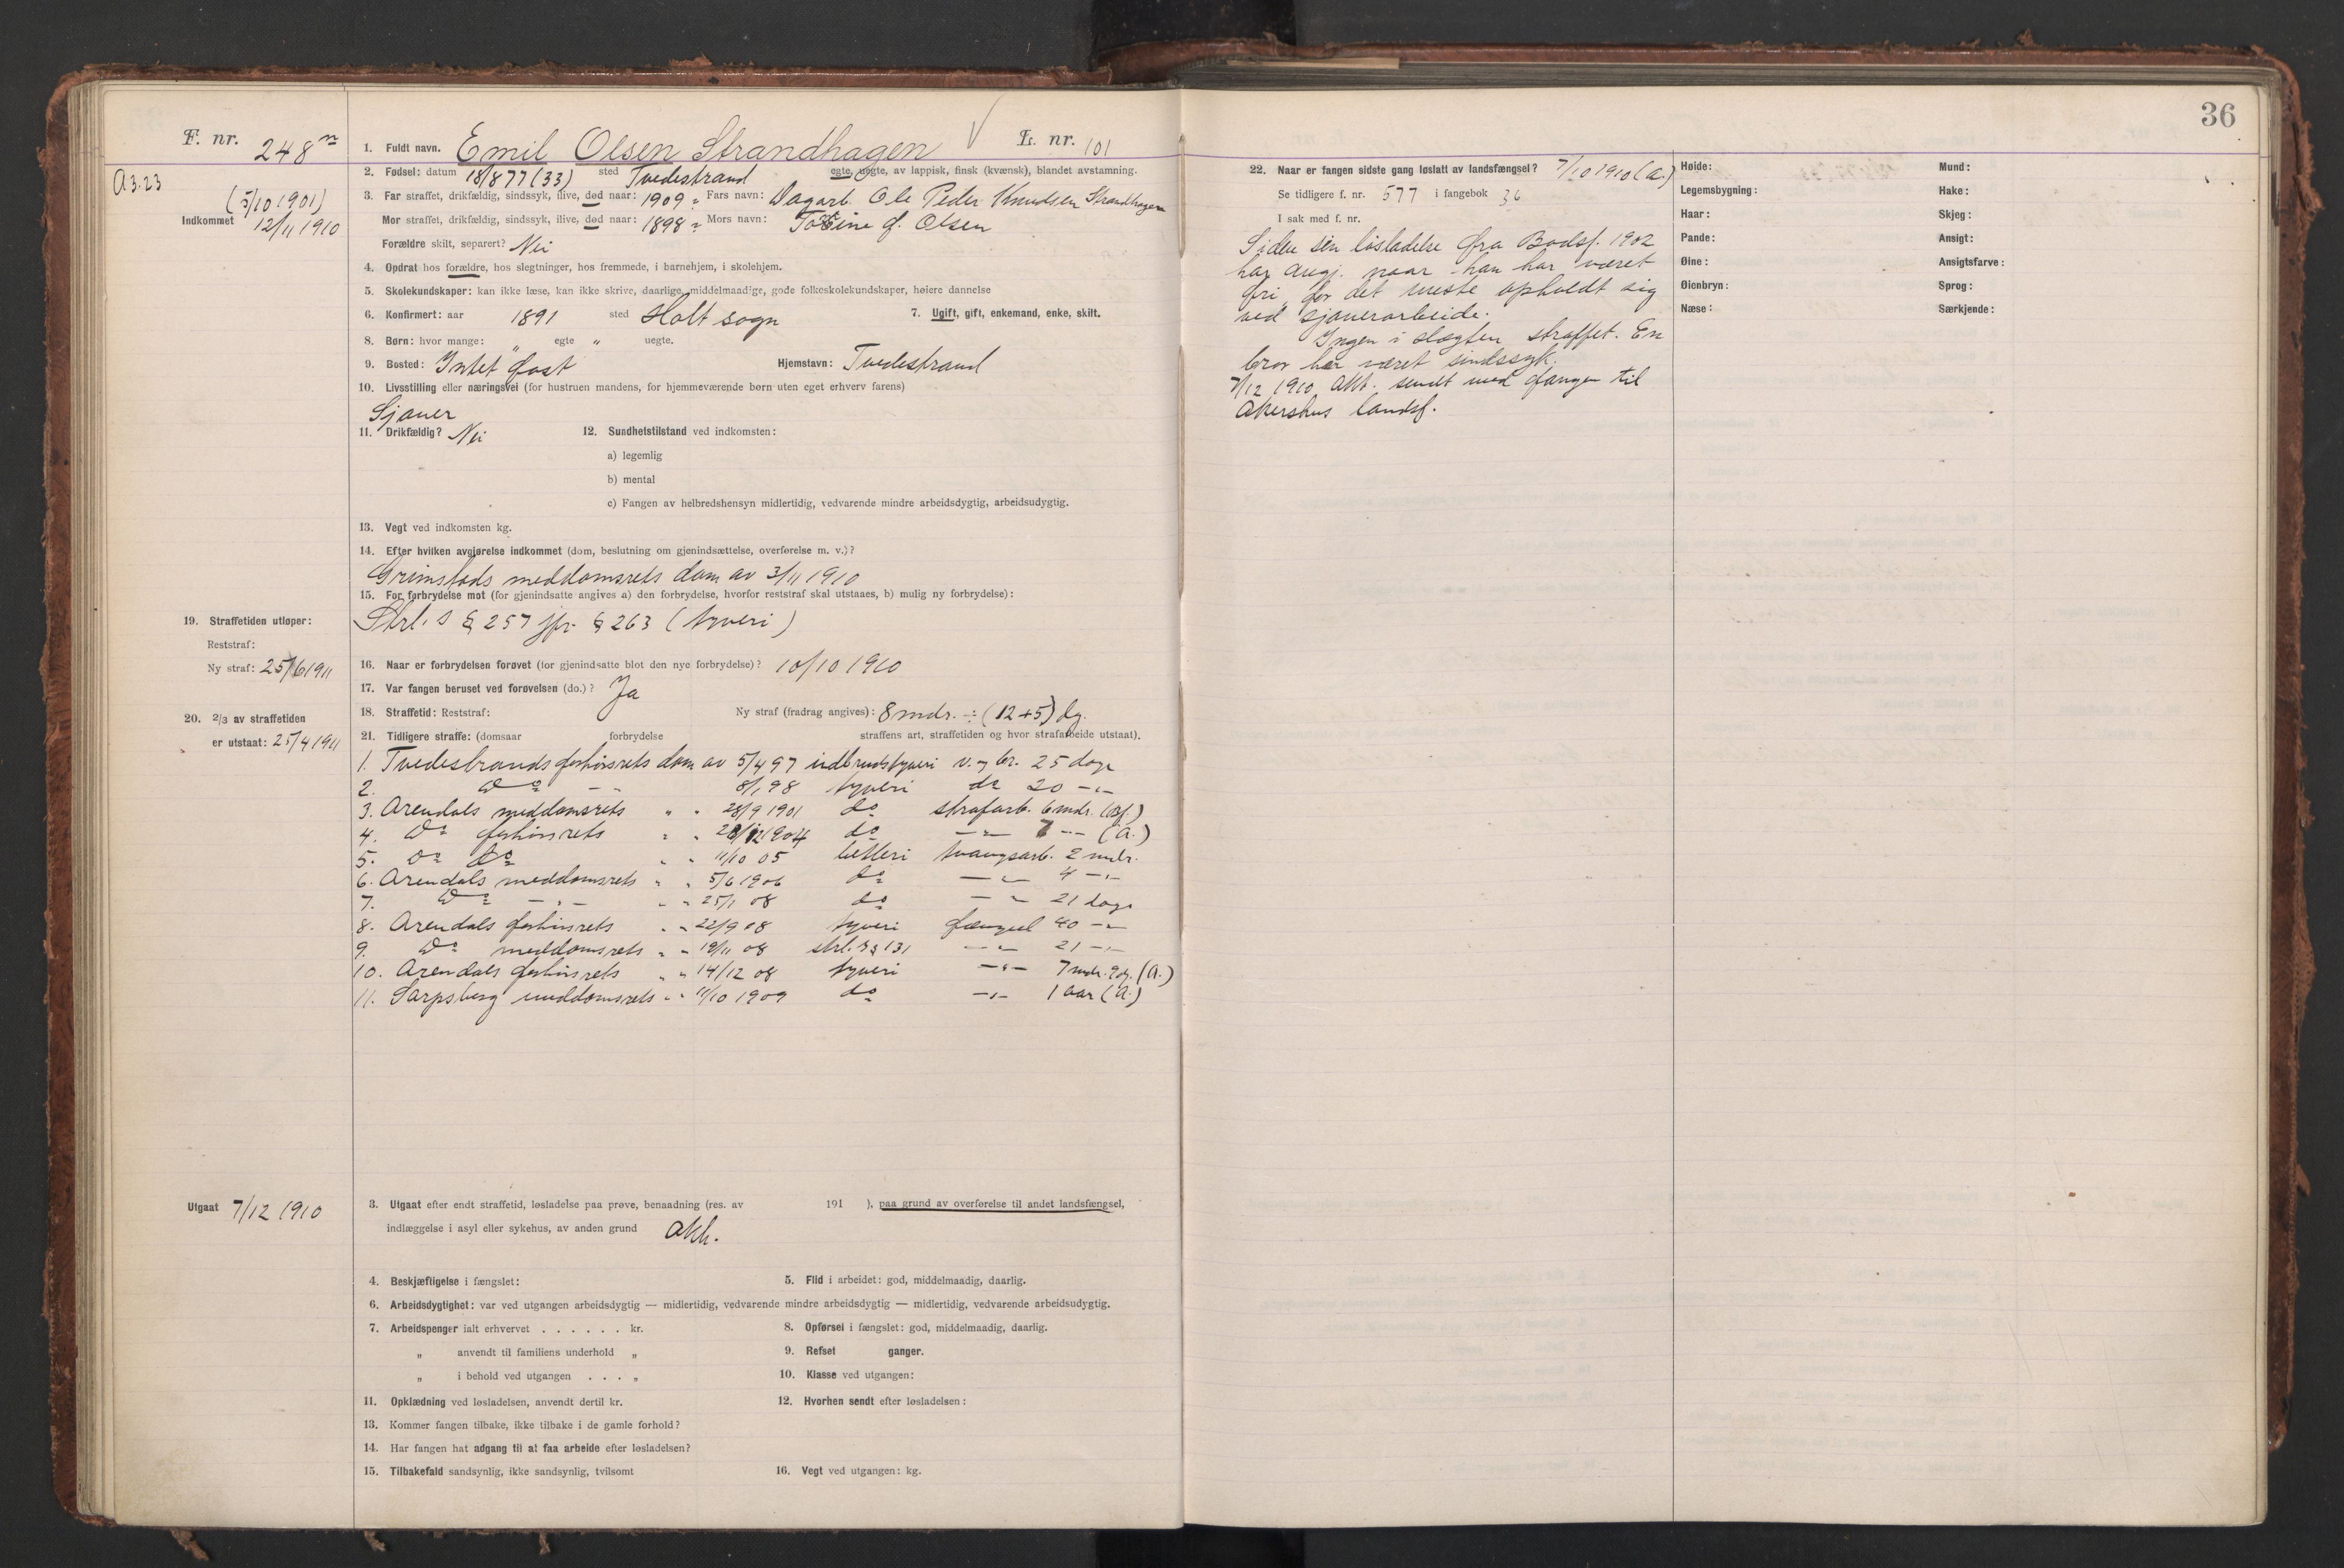 F. nr. 248 n
A3.23
(5/10 1901)
Indkommet 12/11 1910
1. Fuldt navn. Emil Olsen Strandhagen L. nr. 101
2. Fødsel: datum 18/8 77 (33) sted Tvedestrand egte, uegte, av lappisk, finsk (kvænsk), blandet avstamning.
3. Far straffet, drikfældig, sindssyk, ilive, død naar: 1909 Fars navn: Dagarb. Ole Peder Knudsen Strandhagen
Mor straffet, drikfældig, sindssyk, ilive, død naar: 1898 Mors navn: f. Olsen
Forældre skilt, separert? Nei
4. Opdrat hos forældre, hos slegtninger, hos fremmede, i barnehjem, i skolehjem.
5. Skolekundskaper: kan ikke læse, kan ikke skrive, daarlige, middelmaadige, gode folkeskolekundskaper, høiere dannelse
6. Konfirmert: aar 1891 sted Holt sogn 7. Ugift, gift, enkemand, enke, skilt.
8. Børn: hvor mange: „ egte „ uegte.
9. Bosted: Intet fast Hjemstavn: Tvedestrand
10. Livsstilling eller næringsvei (for hustruen mandens, for hjemmeværende børn uten eget erhverv farens)
Sjauer
11. Drikfældig? Nei 12. Sundhetstilstand ved indkomsten:
a) legemlig
b) mental
c) Fangen av helbredshensyn midlertidig, vedvarende mindre arbeidsdygtig, arbeidsudygtig.
13. Vegt ved indkomsten kg.
14. Efter hvilken avgjørelse indkommet (dom, beslutning om gjenindsættelse, overførelse m. v.)?
Grimstads meddomsrets dom av 3/11 1910
15. For forbrydelse mot (for gjenindsatte angives a) den forbrydelse, hvorfor reststraf skal utstaaes, b) mulig ny forbrydelse):
Strl.s § 257 jfr. § 263 (tyveri)
19. Straffetiden utløper:
Reststraf:
Ny straf: 25/6 1911
16. Naar er forbrydelsen forøvet (for gjenindsatte blot den nye forbrydelse)? 10/10 1910
17. Var fangen beruset ved forøvelsen (do.)? Ja
20. 2/3 av straffetiden
er utstaat: 25/4 1911
18. Straffetid: Reststraf: Ny straf (fradrag angives): 8 mdr. ÷ (12+5) dg.
21. Tidligere straffe: (domsaar forbrydelse straffens art, straffetiden og hvor strafarbeide utstaat).
1. Tvedestrands forhørsrets dom av 5/4 97 indbrudstyveri v. og br. 25 dage
2. Do — — 8/1 98 tyveri do 20 -"-
3. Arendals meddomsrets " " 28/9 1901 do strafarb. 6 mdr. (Bf.)
4. Do forhørsrets " " 1904 do -"- 7 -"- (A.)
5. Do do " " 11/10 05 betleri tvangsarb. 2 mdr.
6. Arendals meddomsrets " " 5/6 1906 do -"- 4 -"-
7. Do -"- " " 25/1 08 do -"- 21 dage
8. Arendals forhørsrets " " 22/9 08 tyveri fængsel 40 -"-
9. Do meddomsrets " " 19/11 08 strl.s § 131 -"- 21 -"-
10. Arendals forhørsrets " " 14/12 08 tyveri -"- 7 mdr. 9 dg. (A.)
11. Sarpsborg meddomsrets " " 11/10 1909 do -"- 1 aar (A.)
Utgaat 7/12 1910
3. Utgaat efter endt straffetid, løsladelse paa prøve, benaadning (res. av 191 ), paa grund av overførelse til andet landsfængsel,
indlæggelse i asyl eller sykehus, av anden grund Akh.
4. Beskjæftigelse i fængslet: 5. Flid i arbeidet: god, middelmaadig, daarlig.
6. Arbeidsdygtighet: var ved utgangen arbeidsdygtig — midlertidig, vedvarende mindre arbeidsdygtig — midlertidig, vedvarende arbeidsudygtig.
7. Arbeidspenger ialt erhvervet . . . . . . kr. 8. Opførsel i fængslet: god, middelmaadig, daarlig.
„ anvendt til familiens underhold „ 9. Refset ganger.
„ i behold ved utgangen . . . „ 10. Klasse ved utgangen:
11. Opklædning ved løsladelsen, anvendt dertil kr. 12. Hvorhen sendt efter løsladelsen:
13. Kommer fangen tilbake, ikke tilbake i de gamle forhold?
14. Har fangen hat adgang til at faa arbeide efter løsladelsen?
15. Tilbakefald sandsynlig, ikke sandsynlig, tvilsomt 16. Vegt ved utgangen: kg.
36
22. Naar er fangen sidste gang løslatt av landsfængsel? 7/10 1910 (A.)
Se tidligere f. nr. 577 i fangebok 36
I sak med f. nr.
Siden sin løsladelse fra Bodsf. 1902
har angj. naar han har været
fri, for det meste opholdt sig
ved sjauerarbeide.
Ingen i slægten straffet. En
bror har været sindssyk.
7/12 1910 Akt. sendt med fangen til
Akershus landsf.
Høide: Mund:
Legemsbygning: Hake:
Haar: Skjeg:
Pande: Ansigt:
Øine: Ansigtsfarve:
Øienbryn: Sprog:
Næse: Særkjende: